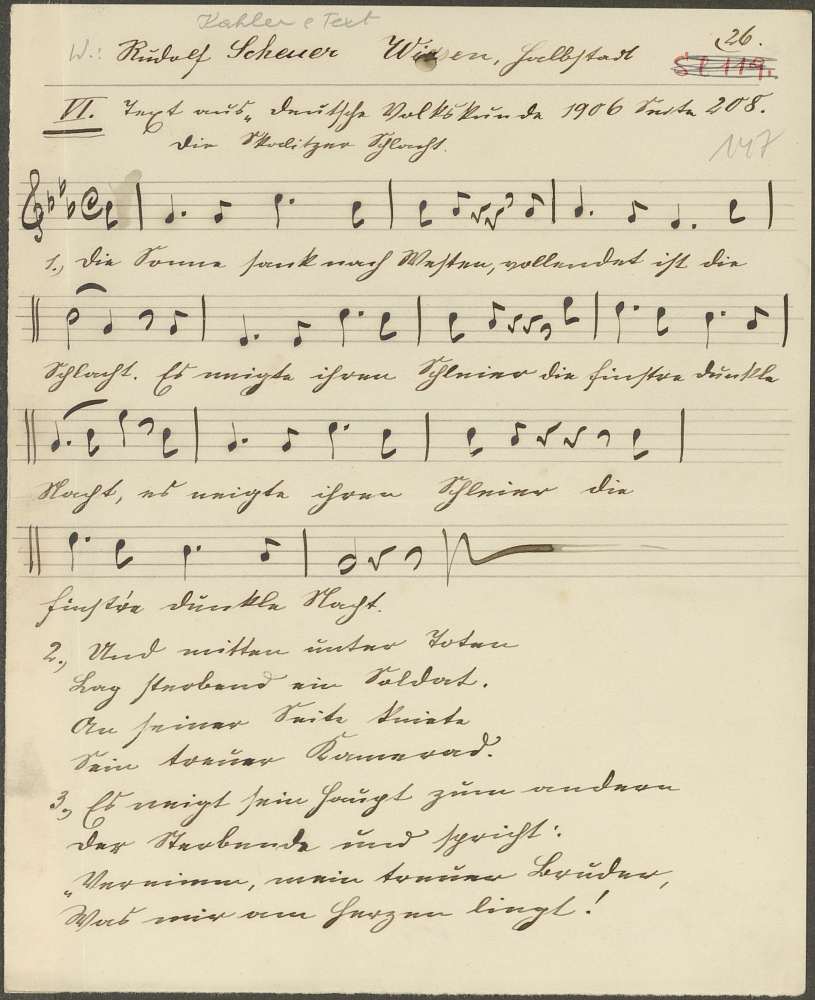 Kahler c Text
26.
W.: Rudolf Scheuer Wiesen, Halbstadt
St 119.
VI. Text aus „Deutsche Volkskunde 1906 Seite 208.
Die Skalitzer Schlacht.
147
1., Die Sonne sank nach Westen, vollendet ist die
Schlacht. Es neigte ihren Schleier die finstre dunkle
Nacht, es neigte ihren Schleier die
finst're dunkle Nacht.
2., Und mitten unter Toten
Lag sterbend ein Soldat.
An seiner Seite kniete
Sein treuer Kamerad.
3., Es neigt sein Haupt zum andern
Der Sterbende und spricht:
„Vernimm, mein treuer Bruder,
Was mir am Herzen liegt!